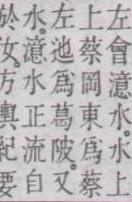 左會澺水。水上
上蔡岡東爲蔡
左池爲葛陂。又
水。澺水正流自
於汝。方輿紀要